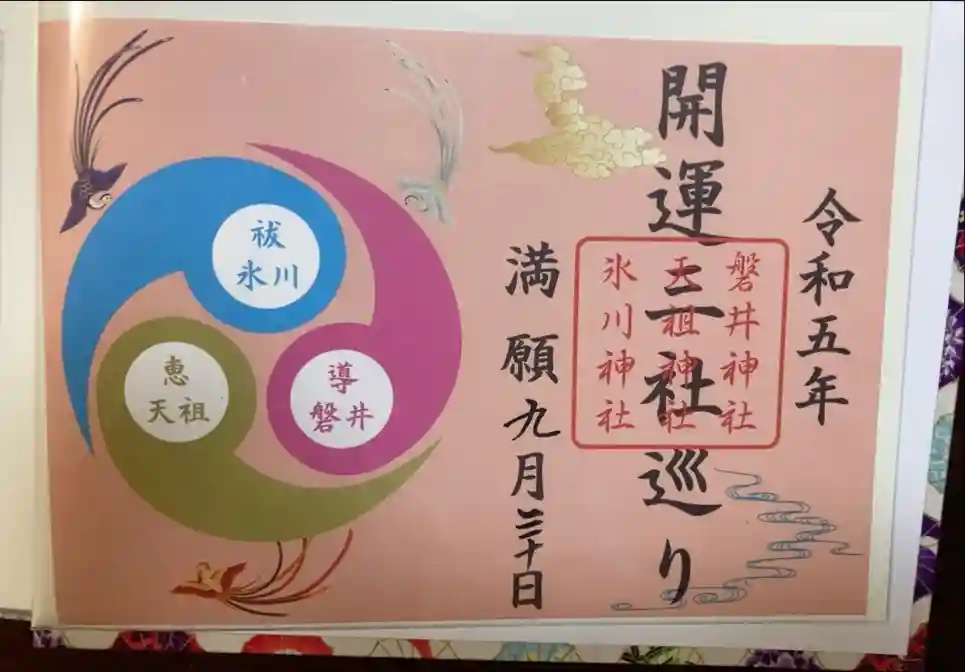 令和五年
開運三社巡り
磐井神社
天祖神社
氷川神社
満願九月三十日
祓
氷川
恵
天祖
導
磐井